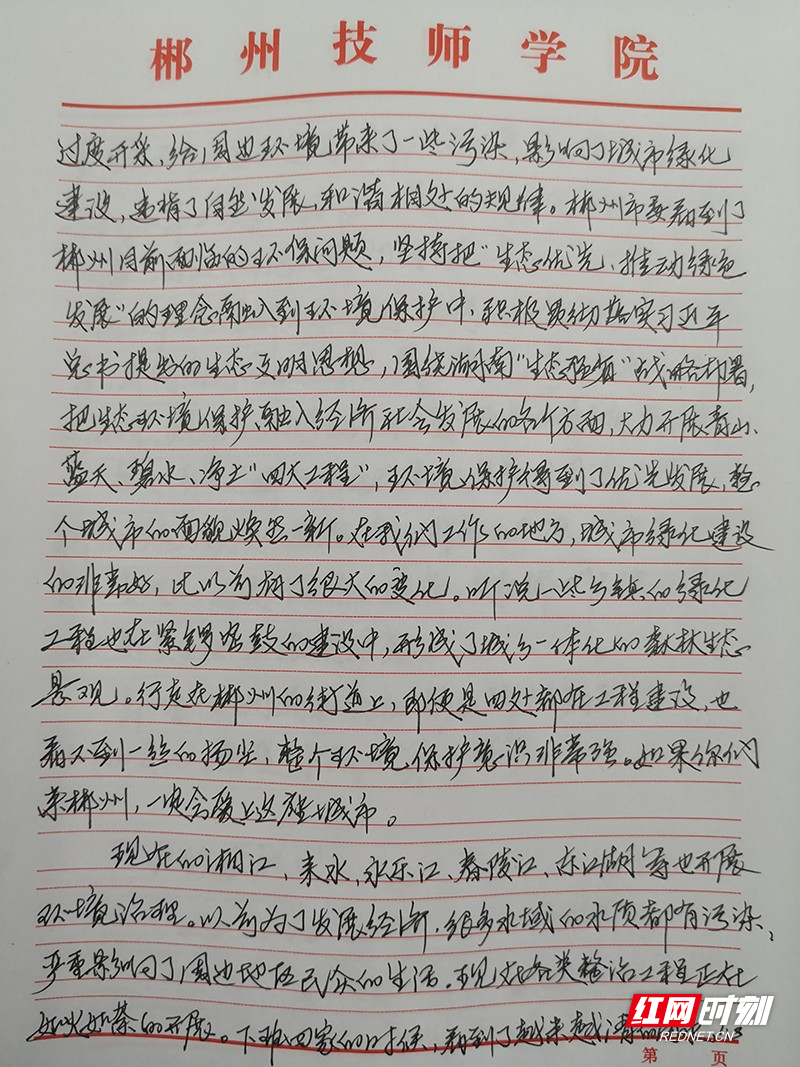 郴州技师学院
过度开采,给周边环境带来了一些污染,影响了城市绿化
建设,违背了自然发展,和谐相处的规律。郴州市委看到了
郴州目前面临的环保问题,坚持把"生态优先、推动绿色
发展"的理念融入到环境保护中,积极贯彻落实习近平
总书提出的生态文明思想,围绕湖南"生态强省"战略部署,
把生态环境保护融入经济社会发展的各个方面,大力开展青山、
蓝天、碧水、净土"四大工程",环境保护得到了优先发展,整
个城市的面貌焕然一新。在我们工作的地方,城市绿化建设
的非常好,比以前有了很大的变化。听说一些乡镇的绿化
工程也在紧锣密鼓的建设中,形成了城乡一体化的森林生态
景观。行走在郴州的街道上,即便是四处都在工程建设,也
看不到一丝的扬尘,整个环境保护意识非常强。如果你们
来郴州,一定会爱上这座城市。
现在的湘江、耒水、永乐江、舂陵江、东江湖等也开展
环境治理。以前为了发展经济,很多水域的水质都有污染,
严重影响了周边地区民众的生活。现在各类整治工程正在
如火如荼的开展。下班回家的时候,看到了越来越清的
红网时刻
REDNET.CN
第 页